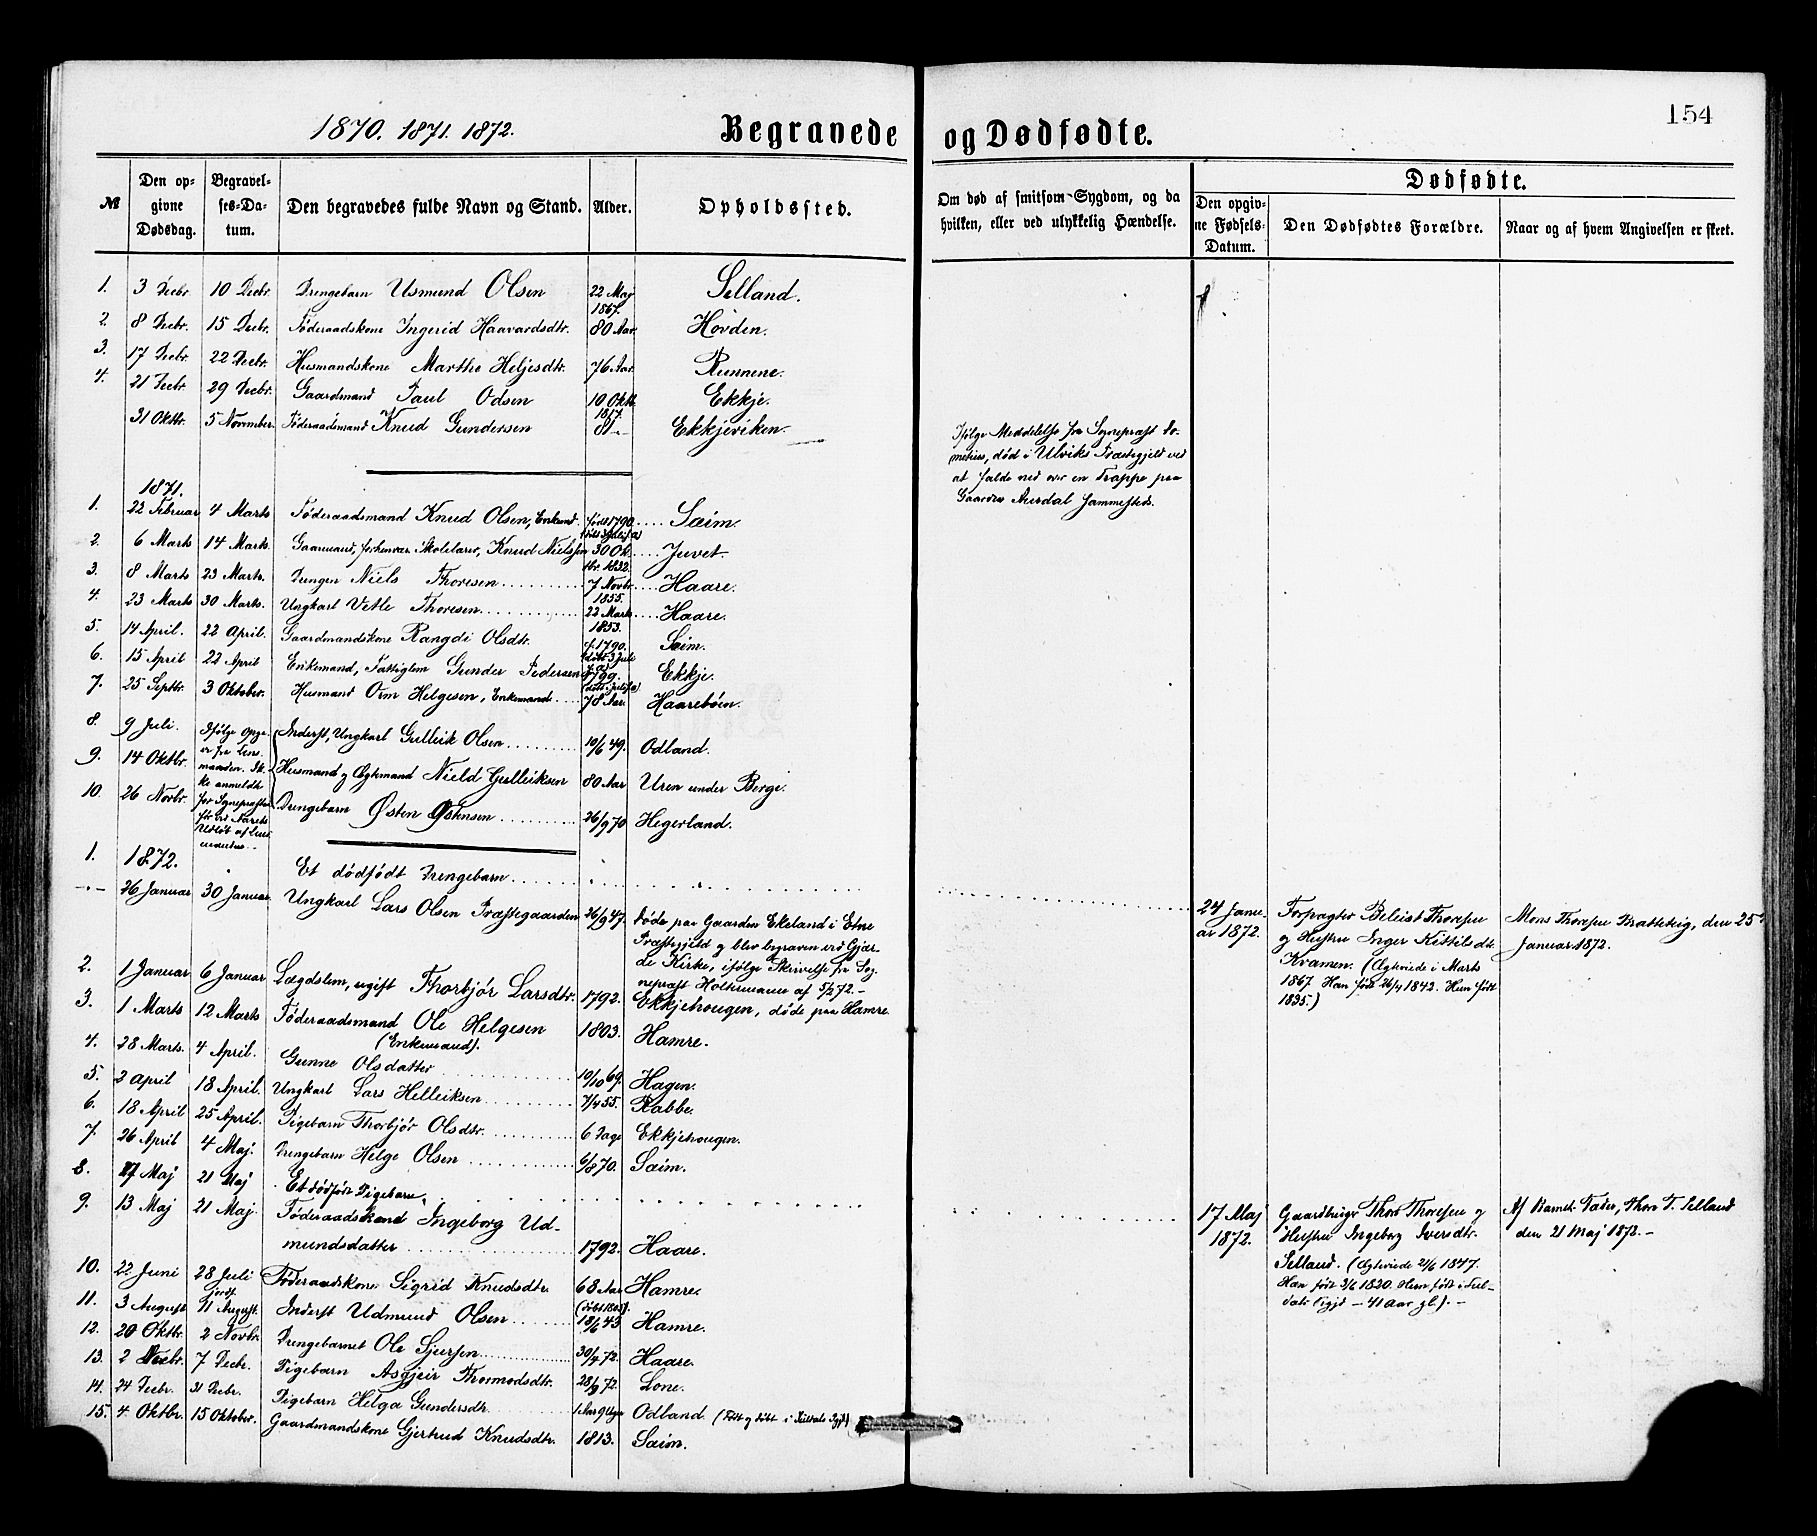 154
1870. 1871. 1872.
Begravede og Dødfødte.
№
Den opgivne Dødsdag.
Begravelses-Datum.
Den begravedes fulde Navn og Stand.
Alder.
Opholdssted.
Om død af smitsom Sygdom, og da hvilken, eller ved ulykkelig Hændelse.
Dødfødte.
Den opgivne Fødsels-Datum.
Den Dødfødtes Forældre.
Naar og af hvem Angivelsen er skeet.
1. 3 Decbr. 10 Decbr. Drengebarn Usmund Olsen 22 Maj 1867. Selland.
2. 8 Decbr. 15 Decbr. Föderaadskone Ingerid Haavardsdtr. 80 Aar. Hövden.
3. 17 Decbr. 22 Decbr. Husmandskone Marthe Heljesdtr. 76 Aar. Runnene.
4. 21 Decbr. 29 Decbr. Gaardmand Paul Odsen 10 Oktb. 1817. Ekkje.
31 Oktbr. 5 November. Föderaadsmand Knud Gundersen 81 - Ekkjeviken.
Ifölge Meddelelse fra Sognepræst
død i Ulviks Præstegjeld ved
at falde ned over en Trappe paa
Gaarden sammesteds.
1871.
1. 22 Februar 4 Marts Föderaadsmand Knud Olsen, Enkemd. födt 1790. Sæim.
2. 6 Marts 14 Marts. Gaarmand, forhenvær. Skolelærer, Knud Nielssen 30 Okbr. 1832. Juvet.
3. 8 Marts 23 Marts. Drengen Niels Thoresen 7 Novbr. 1855. Haare.
4. 23 Marts 30 Marts. Ungkarl Vetle Thoresen 22 Marts 1853. Haare.
5. 14 April. 22 April. Gaardmandskone Rangdi Olsdtr. f. 1790. Sæim.
6. 15 April 22 April Enkemand, Fattiglem Gunder Pedersen 1799. Ekkje.
7. 25 Septbr. 3 Oktober. Husmand Orm Helgesen, Enkemand 78 Aar. Haareböen.
8. 9 Juli. Inderst, Ungkarl Gulleik Olsen 10/6 49. Odland.
Ifölge Opgave fra Lensmanden. Ikke anmeldte for Sognepræsten för ved Aarets Udløb af
9. 14 Oktbr. Husmand og Ægtemand Nield Gulleiksen 80 Aar Uren under Berge.
10. 26 Novbr. Drengebarn Østen Østensen 26/9 70 Hegerland.
1872.
1. Et dödfödt Drengebarn
24 Januar 1872. Forpagter Thorsen og Hustru Inger Kittilsdtr. Kvamen. (Ægteviede i Marts 1867. Han födt 26/4 1842. Hun födt 1835.)
Mons Thorsen Brattebrig, den 25 Januar 1872.
- " - 26 Januar 30 Januar. Ungkarl Lars Olsen Præstegaarden 26/9 47. döde paa Gaarden Ekeland i Etne
Præstegjeld og blev begraven ved Gjærde Kirke, ifölge Skrivelse fra Sognepræst af 5/2 72. -
2. 1 Januar 6 Januar Lægdslem, ugift Thorbjör Larsdtr. 1792. Ekkjehougen, döde paa Hamre.
3. 1 Marts 12 Marts Föderaadsmand Ole Helgesen (Enkemand). 1803. Hamre.
4. 28 Marts. 4 April. Gunne Olsdatter 10/10 69. Hagen.
5. 2 April 18 April. Ungkarl Lars Helleiksen 7/4 55. Rabbe.
6. 18 April 25 April. Pigebarn Thorbjör Olsdtr. 6 Dage Ekkjehougen.
7. 26 April 4 Maj. Drengebarn Helge Olsen 6/8 70. Sæim.
8. 17 Maj 21 Maj Et dödfödt Pigebarn
17 Maj 1872. Gaardbruger Thore Thoresen og Hustru Ingeborg Iversdtr. Selland. (Ægteviede 21/6 1847. Han födt 3/6 1820. Hun födt i - 41 Aar gl.). -
Af Barnets Fader, Thore T. Selland den 21 Maj 1872. -
9. 13 Maj 21 Maj. Föderaadskone Ingeborg Udmundsdatter 1792. Haare.
10. 22 Juni 28 Juli Föderaadskone Sigrid Knudsdtr. 68 Aar (döbt 1803). Hamre.
11. 3 August 11 August. Inderst Udmund Olsen 18/6 43 Hamre.
12. 20 Oktbr. 2 Novbr. Drengebarnet Ole Sjursen 30/4 72. Haare.
13. 2 Decbr. 7 Decbr. Pigebarn Asgjeir Thormodsdtr. 28/9 72. Lone.
14. 24 Decbr. 31 Decbr. Pigebarn Helga Gundersdtr. 1 Aar 9 Uger Odland.
15. 4 Oktbr. 15 Oktober. Gaardmandskone Gjertrud Knudsdtr. 1813. Sæim.